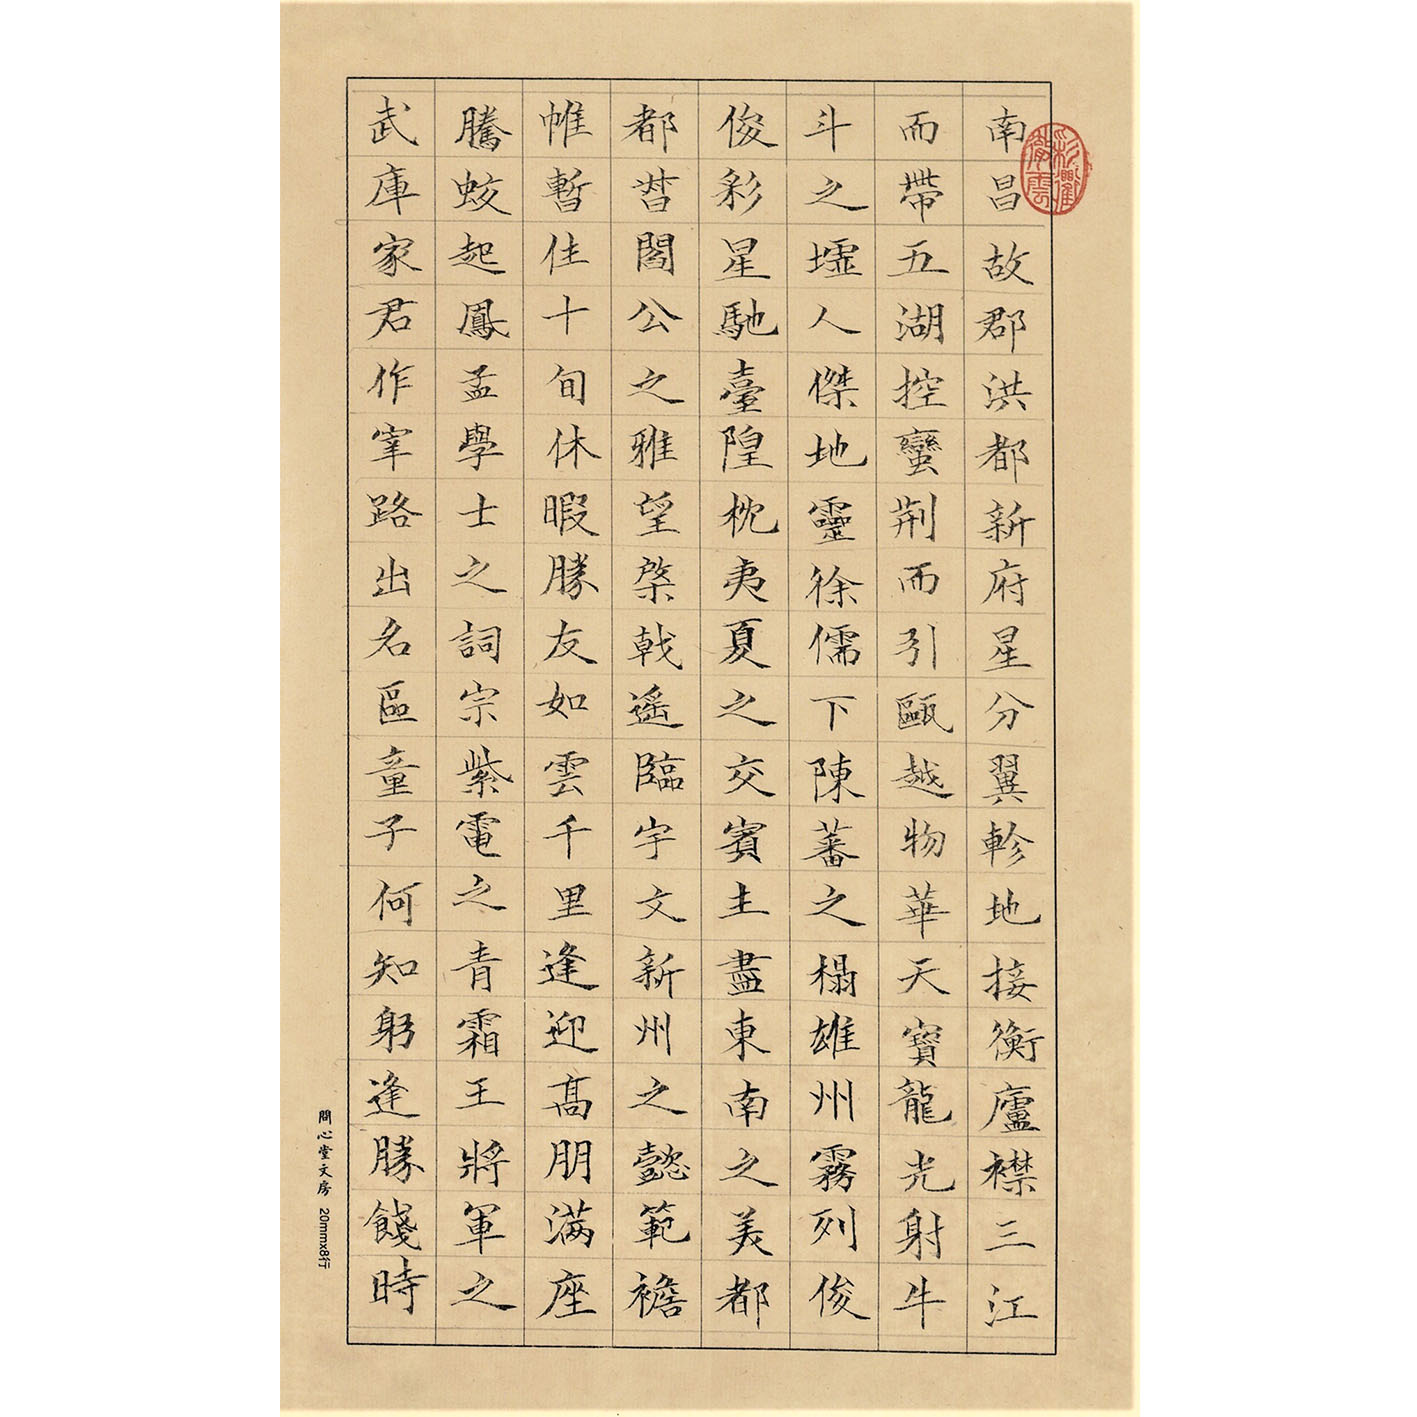 南昌故郡洪都新府星分翼軫地接衡廬襟三江
而帶五湖控蠻荆而引甌越物華天寶龍光射牛
斗之墟人傑地靈徐儒下陳蕃之榻雄州霧列俊
俊彩星馳臺隍枕夷夏之交賓主盡東南之美都
都督閻公之雅望棨戟遥臨宇文新州之懿範襜
帷暫住十旬休暇勝友如雲千里逢迎高朋滿座
騰蛟起鳳孟學士之詞宗紫電之青霜王將軍之
武庫家君作宰路出名區童子何知躬逢勝餞時
彩徹雲衢
問心堂文房 20mmx8行